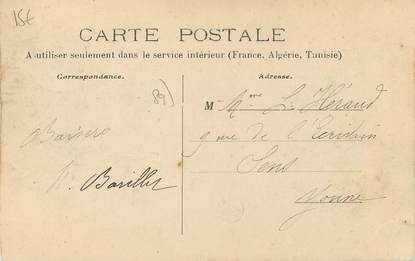 15€
CARTE POSTALE
A utiliser seulement dans le service intérieur (France, Algérie, Tunisie)
Correspondance.
Adresse.
89)
M Mme L. Héraud
9 rue de l'Ecrivain
Sens
Yonne
Baisers
Barillet